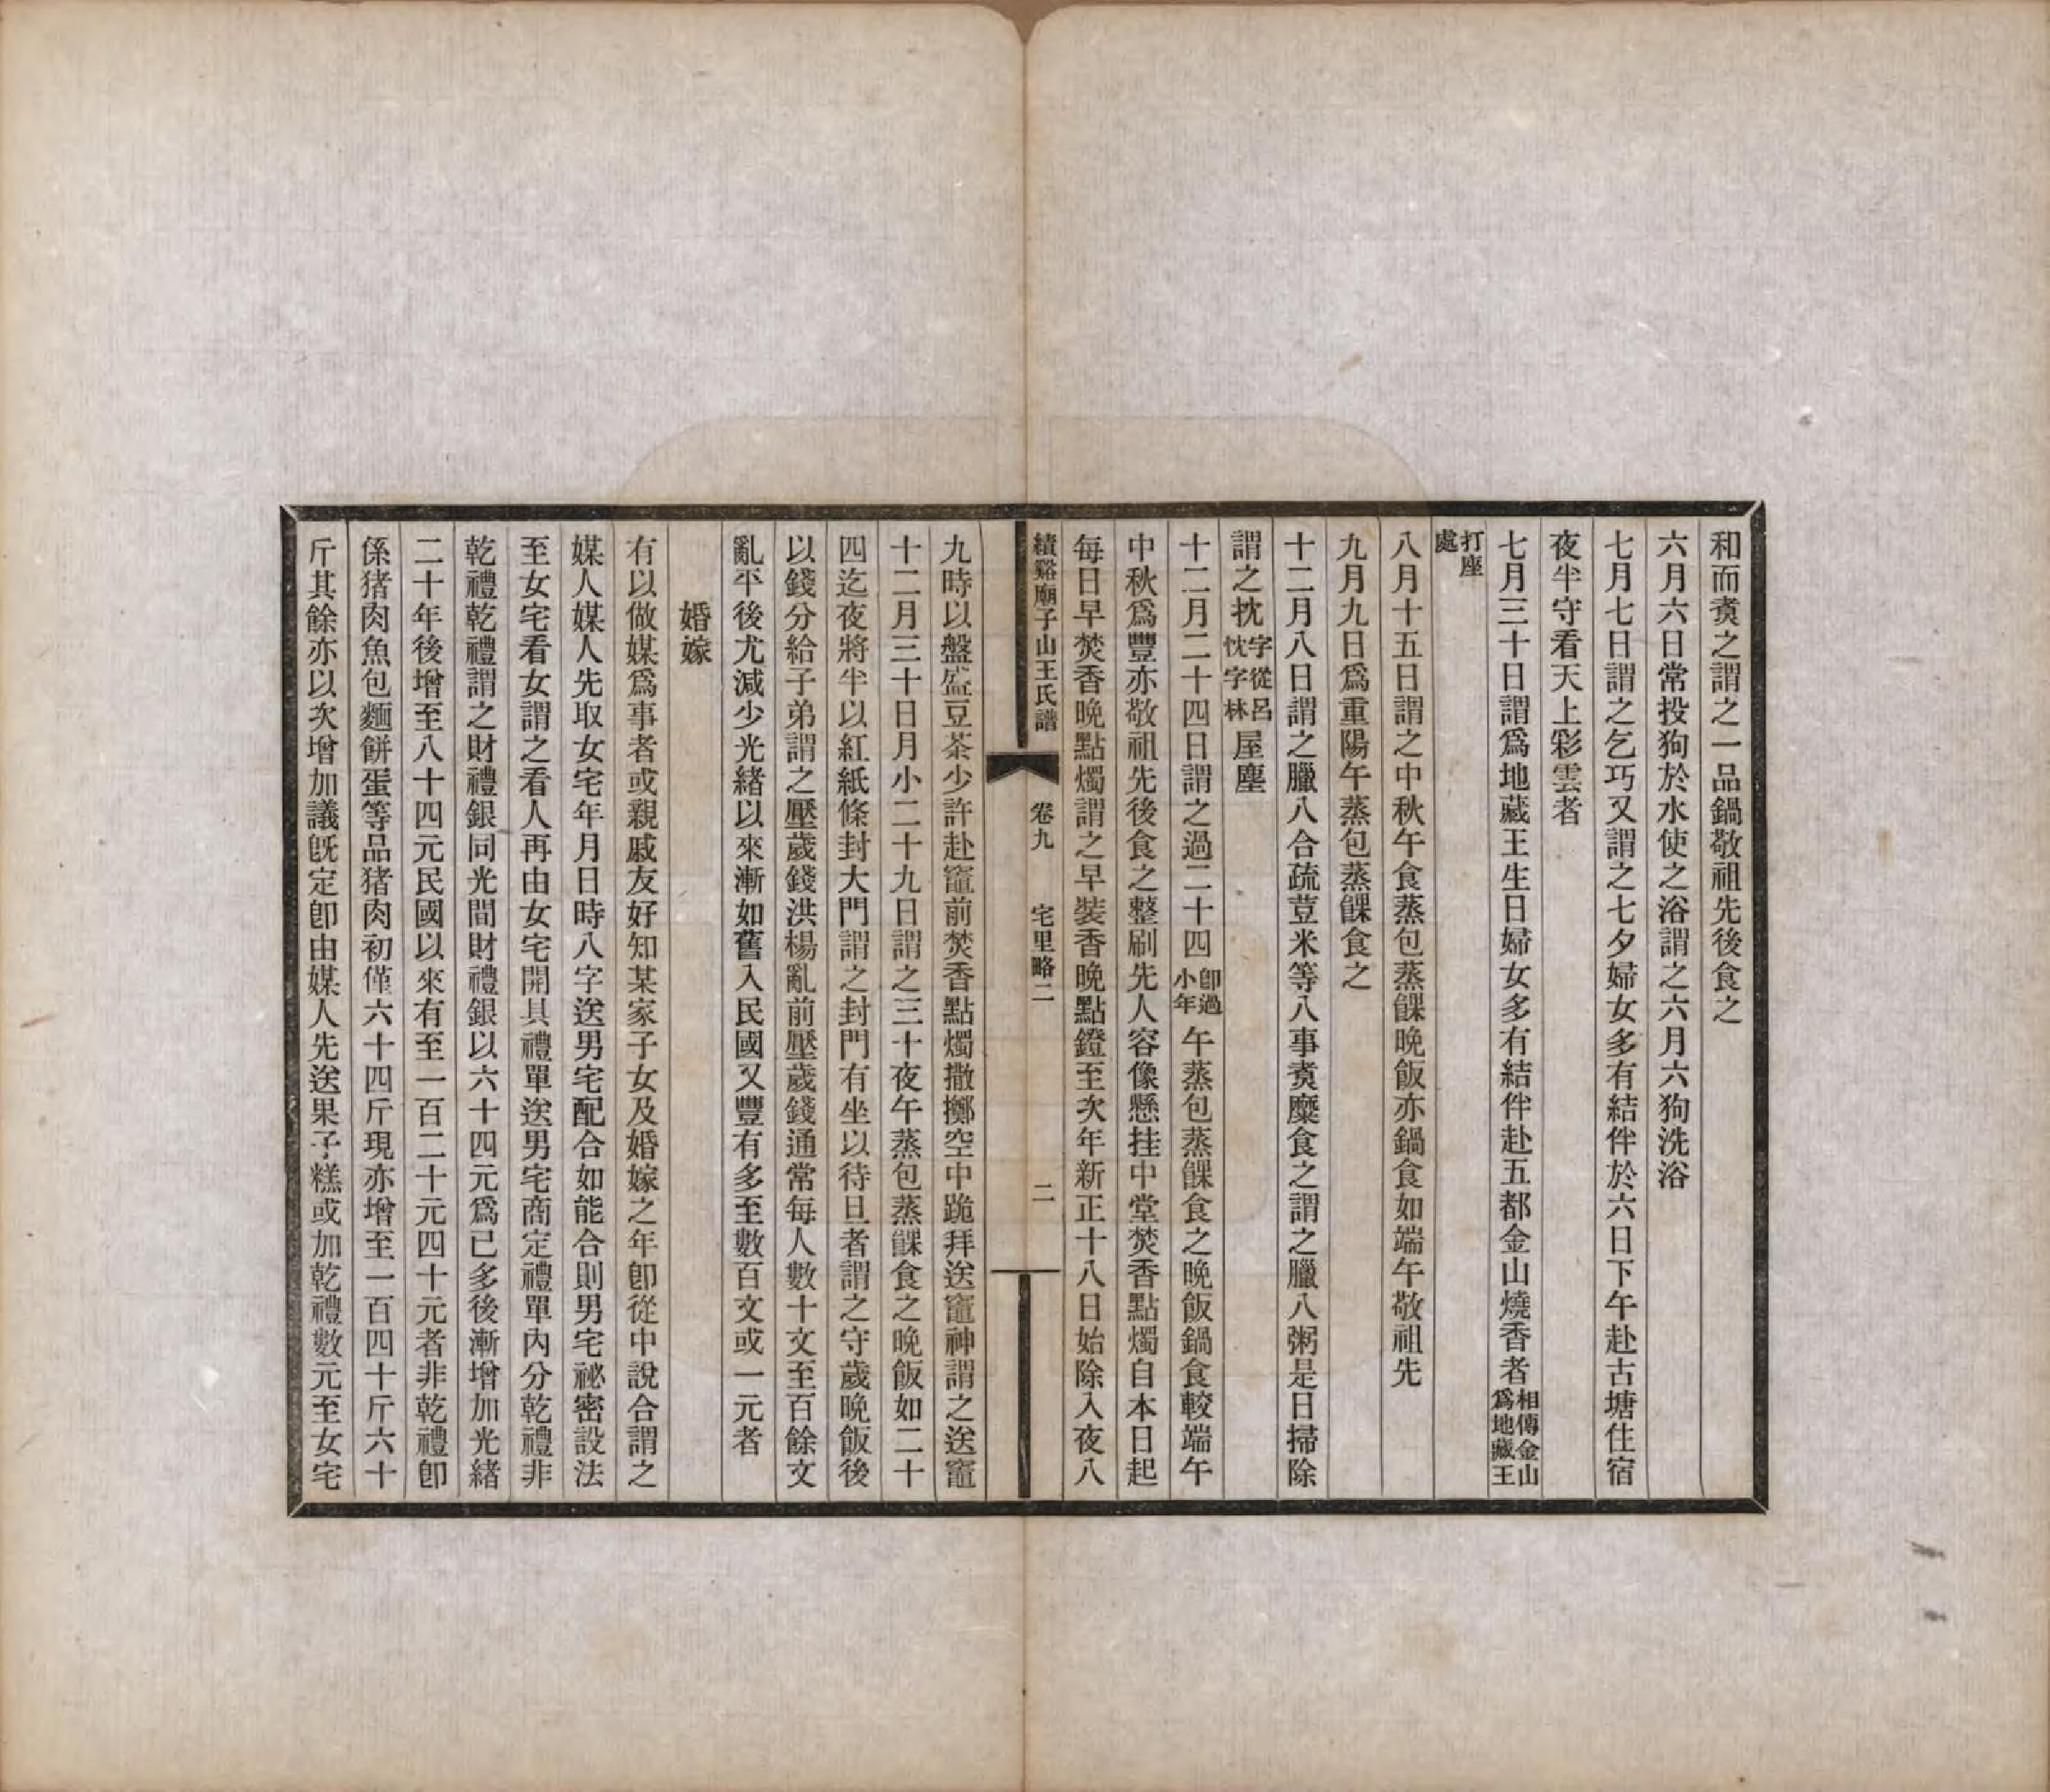 和而煑之謂之一品鍋敬祖先後食之
六月六日常投狗於水使之浴謂之六月六狗洗浴
七月七日謂之乞巧又謂之七夕婦女多有結伴於六日下午赴古塘住宿
夜半守看天上彩雲者
七月三十日謂爲地藏王生日婦女多有結伴赴五都金山燒香者相傳金山爲地藏王
打座處
八月十五日謂之中秋午食蒸包蒸餜晚飯亦鍋食如端午敬祖先
九月九日爲重陽午蒸包蒸餜食之
十二月八日謂之臘八合疏荳米等八事煑糜食之謂之臘八粥是日掃除
謂之抌字從呂忱字林屋塵
十二月二十四日謂之過二十四卽過小年午蒸包蒸餜食之晚飯鍋食較端午
中秋爲豐亦敬祖先後食之整刷先人容像懸挂中堂焚香點燭自本日起
每日早焚香晚點燭謂之早裝香晚點鐙至次年新正十八日始除入夜八
績谿廟子山王氏譜 卷九 宅里略二 二
九時以盤盛豆茶少許赴竈前焚香點燭撒擲空中跪拜送竈神謂之送竈
十二月三十日月小二十九日謂之三十夜午蒸包蒸餜食之晚飯如二十
四迄夜將半以紅紙條封大門謂之封門有坐以待旦者謂之守歲晚飯後
以錢分給子弟謂之壓歲錢洪楊亂前壓歲錢通常每人數十文至百餘文
亂平後尤減少光緒以來漸如舊入民國又豐有多至數百文或一元者
婚嫁
有以做媒爲事者或親戚友好知某家子女及婚嫁之年卽從中說合謂之
媒人媒人先取女宅年月日時八字送男宅配合如能合則男宅祕密設法
至女宅看女謂之看人再由女宅開具禮單送男宅商定禮單內分乾禮非
乾禮乾禮謂之財禮銀同光間財禮銀以六十四元爲已多後漸增加光緒
二十年後增至八十四元民國以來有至一百二十元四十元者非乾禮卽
係猪肉魚包麵餅蛋等品猪肉初僅六十四斤現亦增至一百四十斤六十
斤其餘亦以次增加議旣定卽由媒人先送果子糕或加乾禮數元至女宅